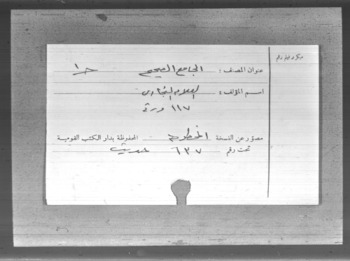 عنوان المصنف : الجامع الصحيح جـ ١
اسم المؤلف : العلامة البخارى
١١٧ ورقة
مصور عن النسخة المخطوطة المحفوظة بدار الكتب القومية
تحت رقم ٦٣٧ حديث